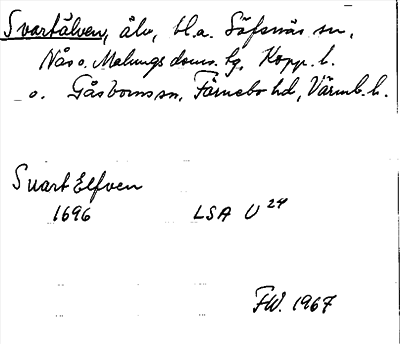 Svartälven, älv, bl.a. Säfsnäs sn,
Nås o. Malungs doms. tg, Kopp. l.
o. Gåsborns sn, Färnebo hd, Värml. l.
Svart Elfven
1696 LSA U 24
FW. 1967